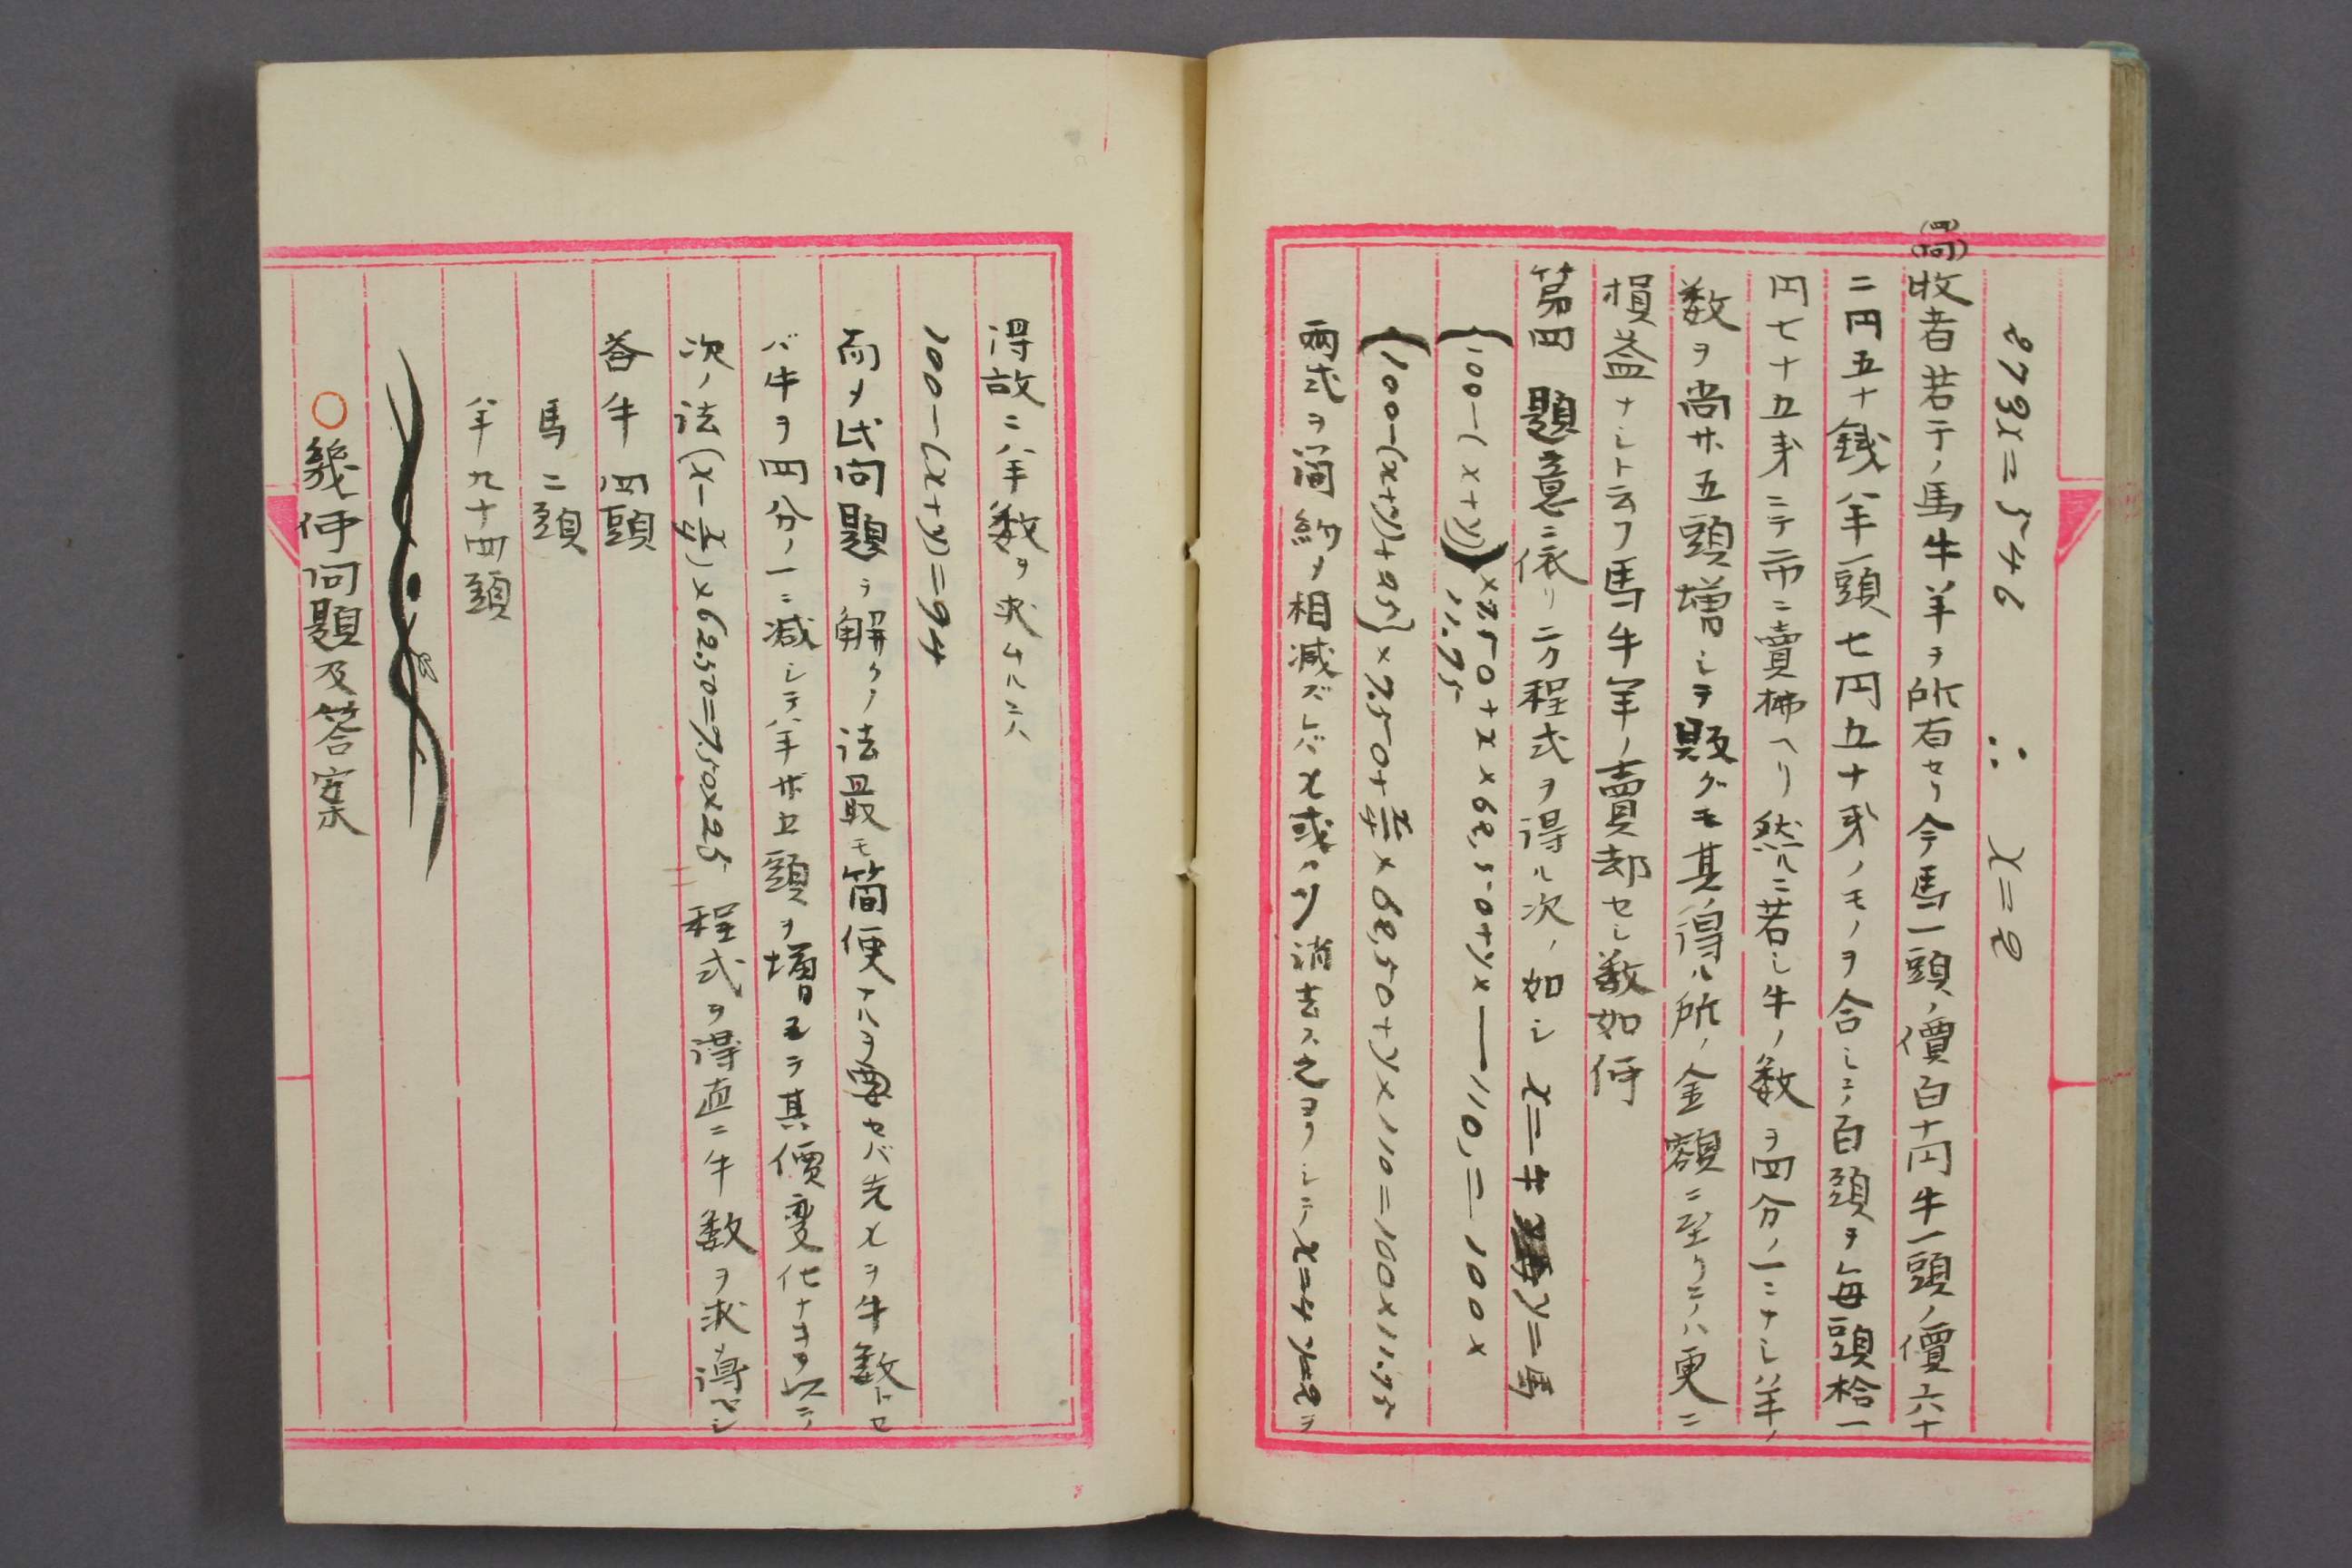 273x=546 ∴ x=2
(四問)牧者若干ノ馬牛羊ヲ所有セリ今馬一頭ノ價百十円牛一頭ノ價六十
二円五十銭羊一頭七円五十戋ノモノヲ合シテ百頭ヲ毎頭拾一
円七十五戋ニテ市ニ賣拂ヘリ然ルニ若シ牛ノ数ヲ四分ノ一ニナシ羊ノ
数ヲ尚廿五頭増シテ販グモ其得ル所ノ金額ニ至リテハ更ニ
損益ナシト云フ馬牛羊ノ賣却セシ数如何
第四 題意ニ依リ二方程式ヲ得ル次ノ如シ x=牛 y=馬
{100-(x+y)}×7.50+x×62.50+y×110,=100×
11.75
{100-(x+y)+25}×7.50+x/4×62,50+y×110=100×11.75
両式ヲ簡約シ相減ズレバx或ハy消去スルヲ x=4 y=2ヲ
得故ニ羊数ヲ求ムルニハ
100-(x+y)=94
而シ此問題ヲ解クノ法最モ簡便ナルヲ要セバ先xヲ牛数トセ
バ牛ヲ四分ノ一ニ減シテ羊廿五頭ヲ増モテ其價変化ナキヲ以テ
次ノ法(x-x/4)×62.50=7.50×25 程式ヲ得直ニ牛数ヲ求メ得ベシ
答 牛 四頭
馬 二頭
羊 九十四頭
○幾何問題及答案